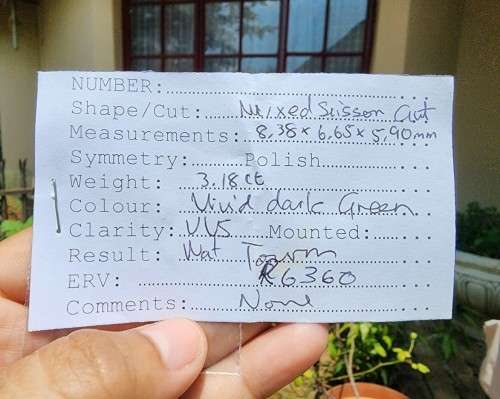 NUMBER:
Shape/Cut: Mixed Scissor Cut
Measurements: 8,38 x 6,65 x 5,90 mm
Symmetry:......Polish
Weight: 3.18 ct
Colour: Vivid dark Green
Clarity: VVS Mounted:
Result: Nat Tourm
ERV: R6360
Comments: None